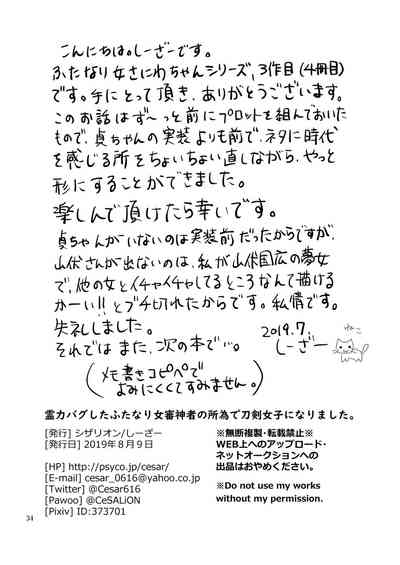 こんにちは。しーざーです。
ふたなり女さにわちゃんシリーズ、3作目(4冊目)
です。手にとって頂き、ありがとうございます。
このお話はず〜っと前にプロットを組んでおいた
もので、貞ちゃんの実装よりも前で、ネタに時代
を感じる所をちょいちょい直しながら、やっと
形にすることができました。
楽しんで頂けたら幸いです。
貞ちゃんがいないのは実装前だったからですが、
山伏さんが出ないのは、私が山伏国広の夢女
で、他の女とイチャイチャしてるところなんて描ける
かーい!!とブチ切れたからです。私情です。
失礼しました。
それではまた、次の本で…。
2019.7.
しーざー
ねこ
(メモ書きコピペで
よみにくくてすみません。)
霊力バグしたふたなり女審神者の所為で刀剣女子になりました。
[発行] シザリオン/しーざー
[発行日] 2019年8月9日
[HP] http://psyco.jp/cesar/
[E-mail] cesar_0616@yahoo.co.jp
[Twitter] @Cesar616
[Pawoo] @CeSALiON
[Pixiv] ID:373701
※無断複製・転載禁止※
WEB上へのアップロード・
ネットオークションへの
出品はおやめください。
※Do not use my works
without my permission.
34